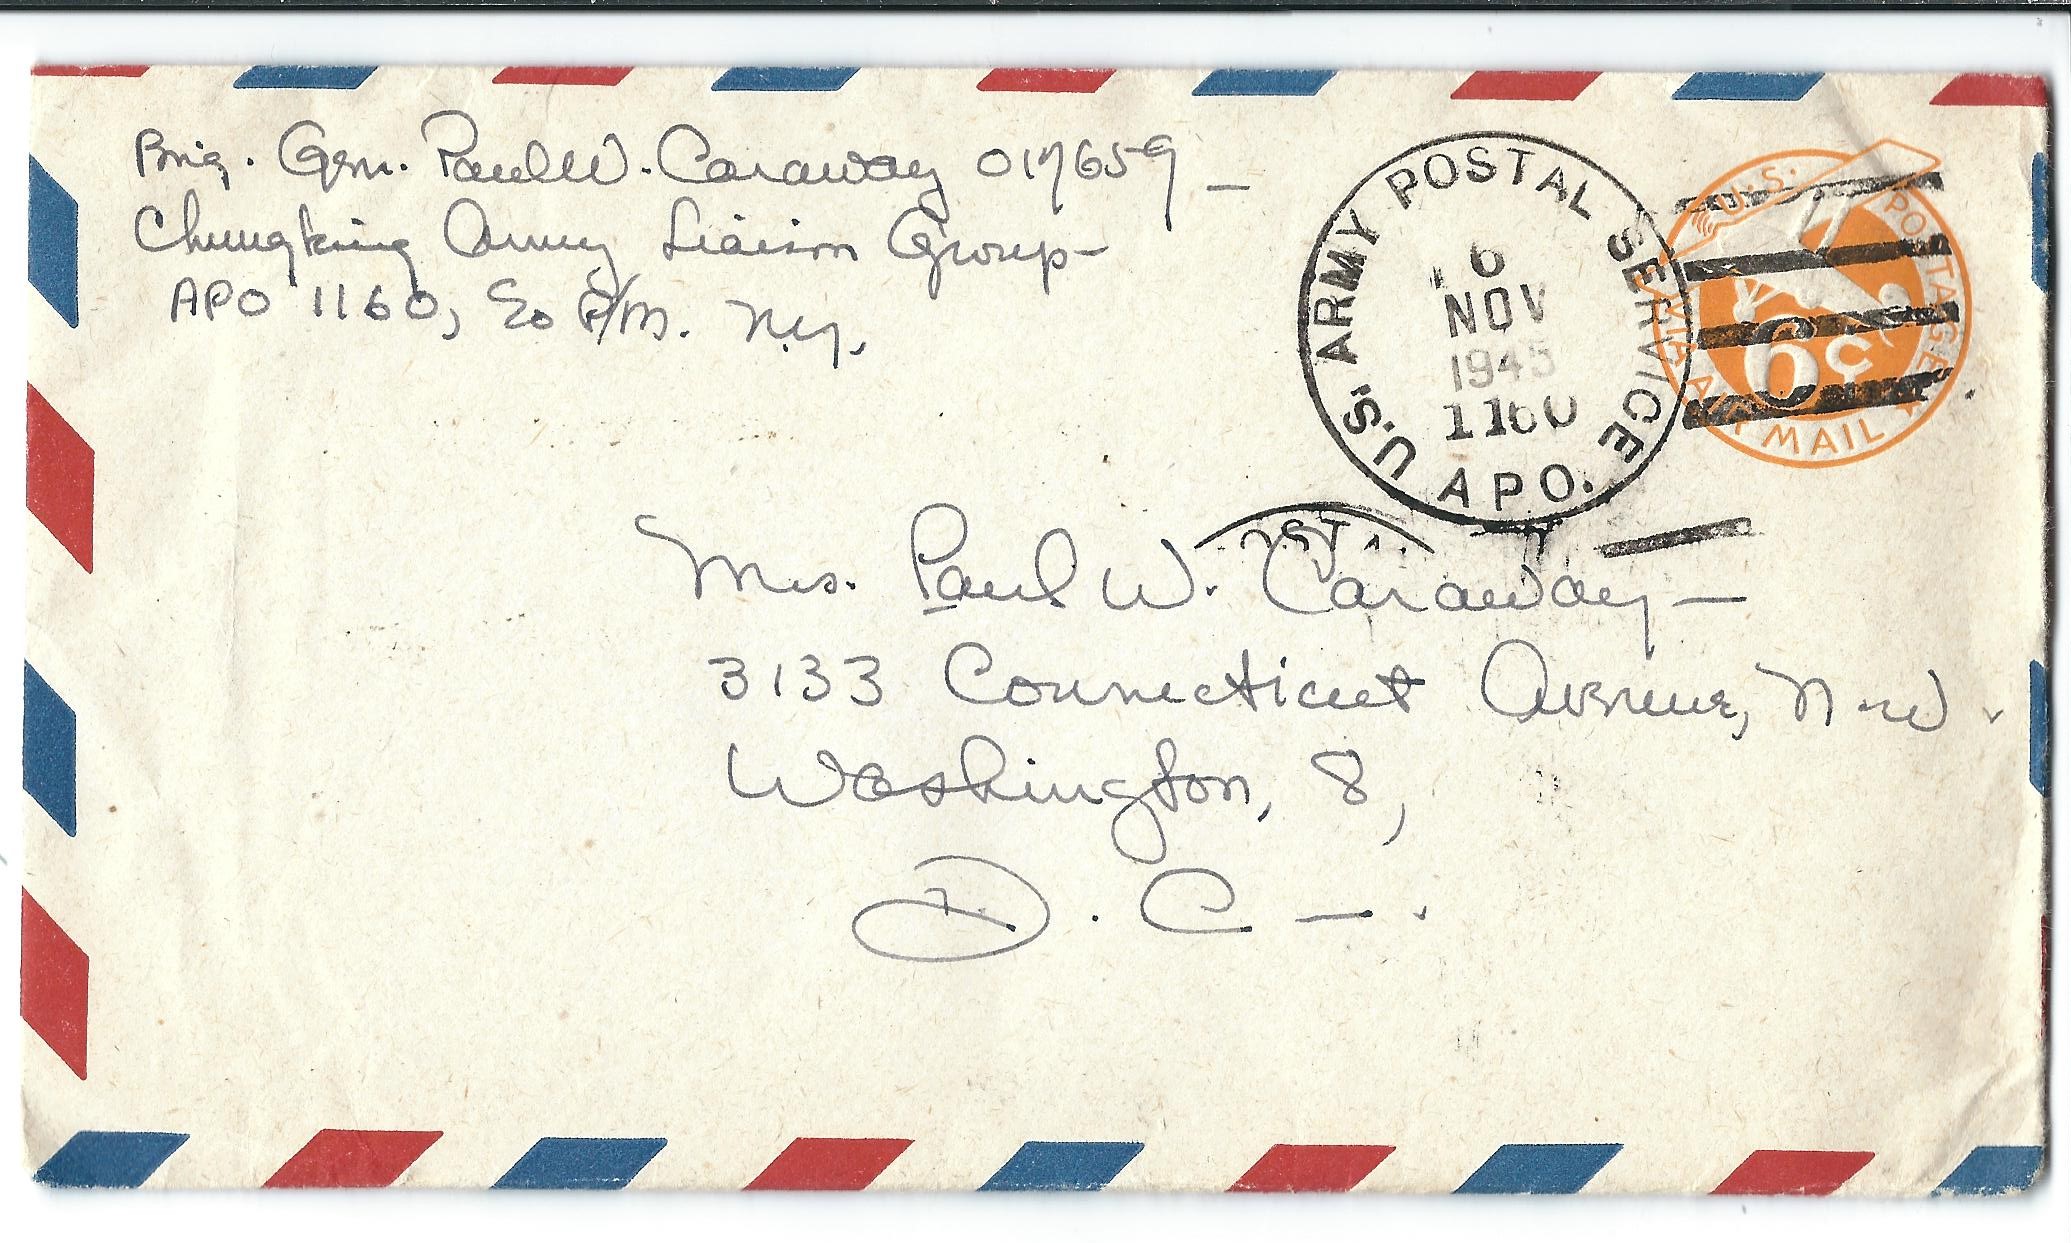 Brig. Gen. Paul W. Caraway O17659 -
Chungking Army Liaison Group -
APO 1160, c/o P/M. N.Y.
U.S. ARMY POSTAL SERVICE
6
NOV
1945
1160
A P O.
U.S. POSTAGE
6¢
VIA AIR MAIL
Mrs. Paul W. Caraway -
3133 Connecticut Avenue, N.W.
Washington, 8,
D. C -.